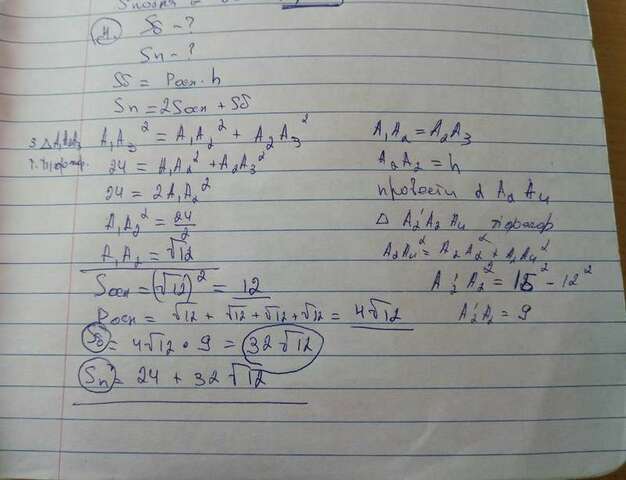 4. Sб - ?
Sп - ?
Sб = Pосн · h
Sп = 2Sосн + Sб
A₁A₃² = A₁A₂² + A₂A₃²
24 = A₁A₂² + A₂A₃²
24 = 2A₁A₂²
A₁A₂² = 24/2
A₁A₂ = √12
A₁A₂ = A₂A₃
A₂A₂ = h
провести d A₂ A₄
Δ A₂'A₂ A₄
A₂A₄² = A₂A₂² + A₂A₄²
A₂'A₂² = 15² - 12²
A₂'A₂ = 9
Sосн = (√12)² = 12
Pосн = √12 + √12 + √12 + √12 = 4√12
Sб = 4√12 · 9 = 32√12
Sп = 24 + 32√12